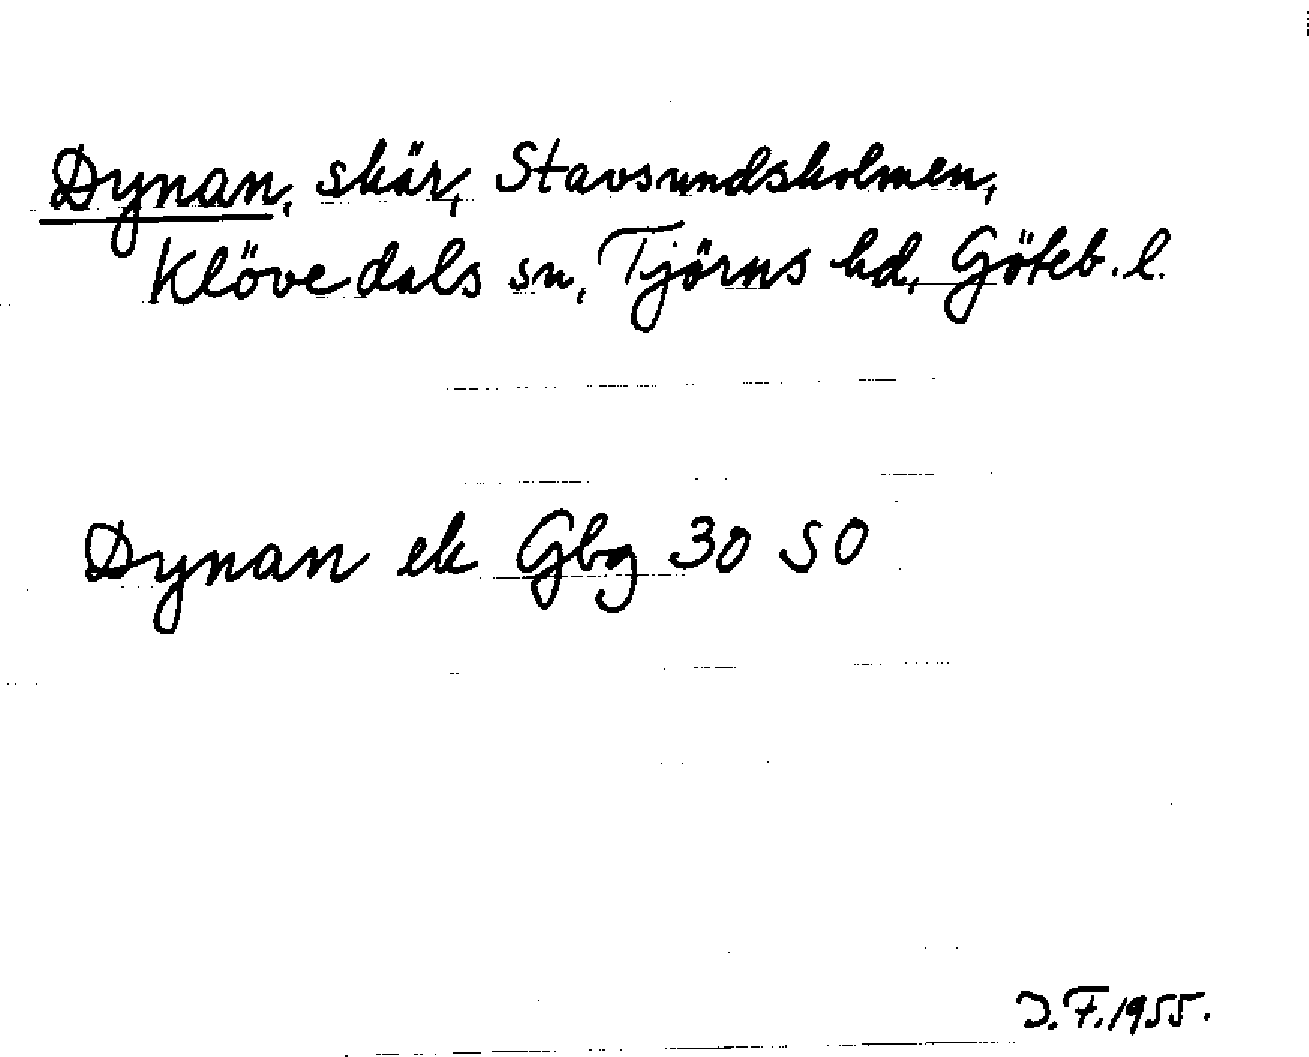 Dynan, skär, Stavsundsholmen,
Klövedals sn, Tjörns hd, Göteb. l.
Dynan ek Gbg 30 SO
J. F. 1955.